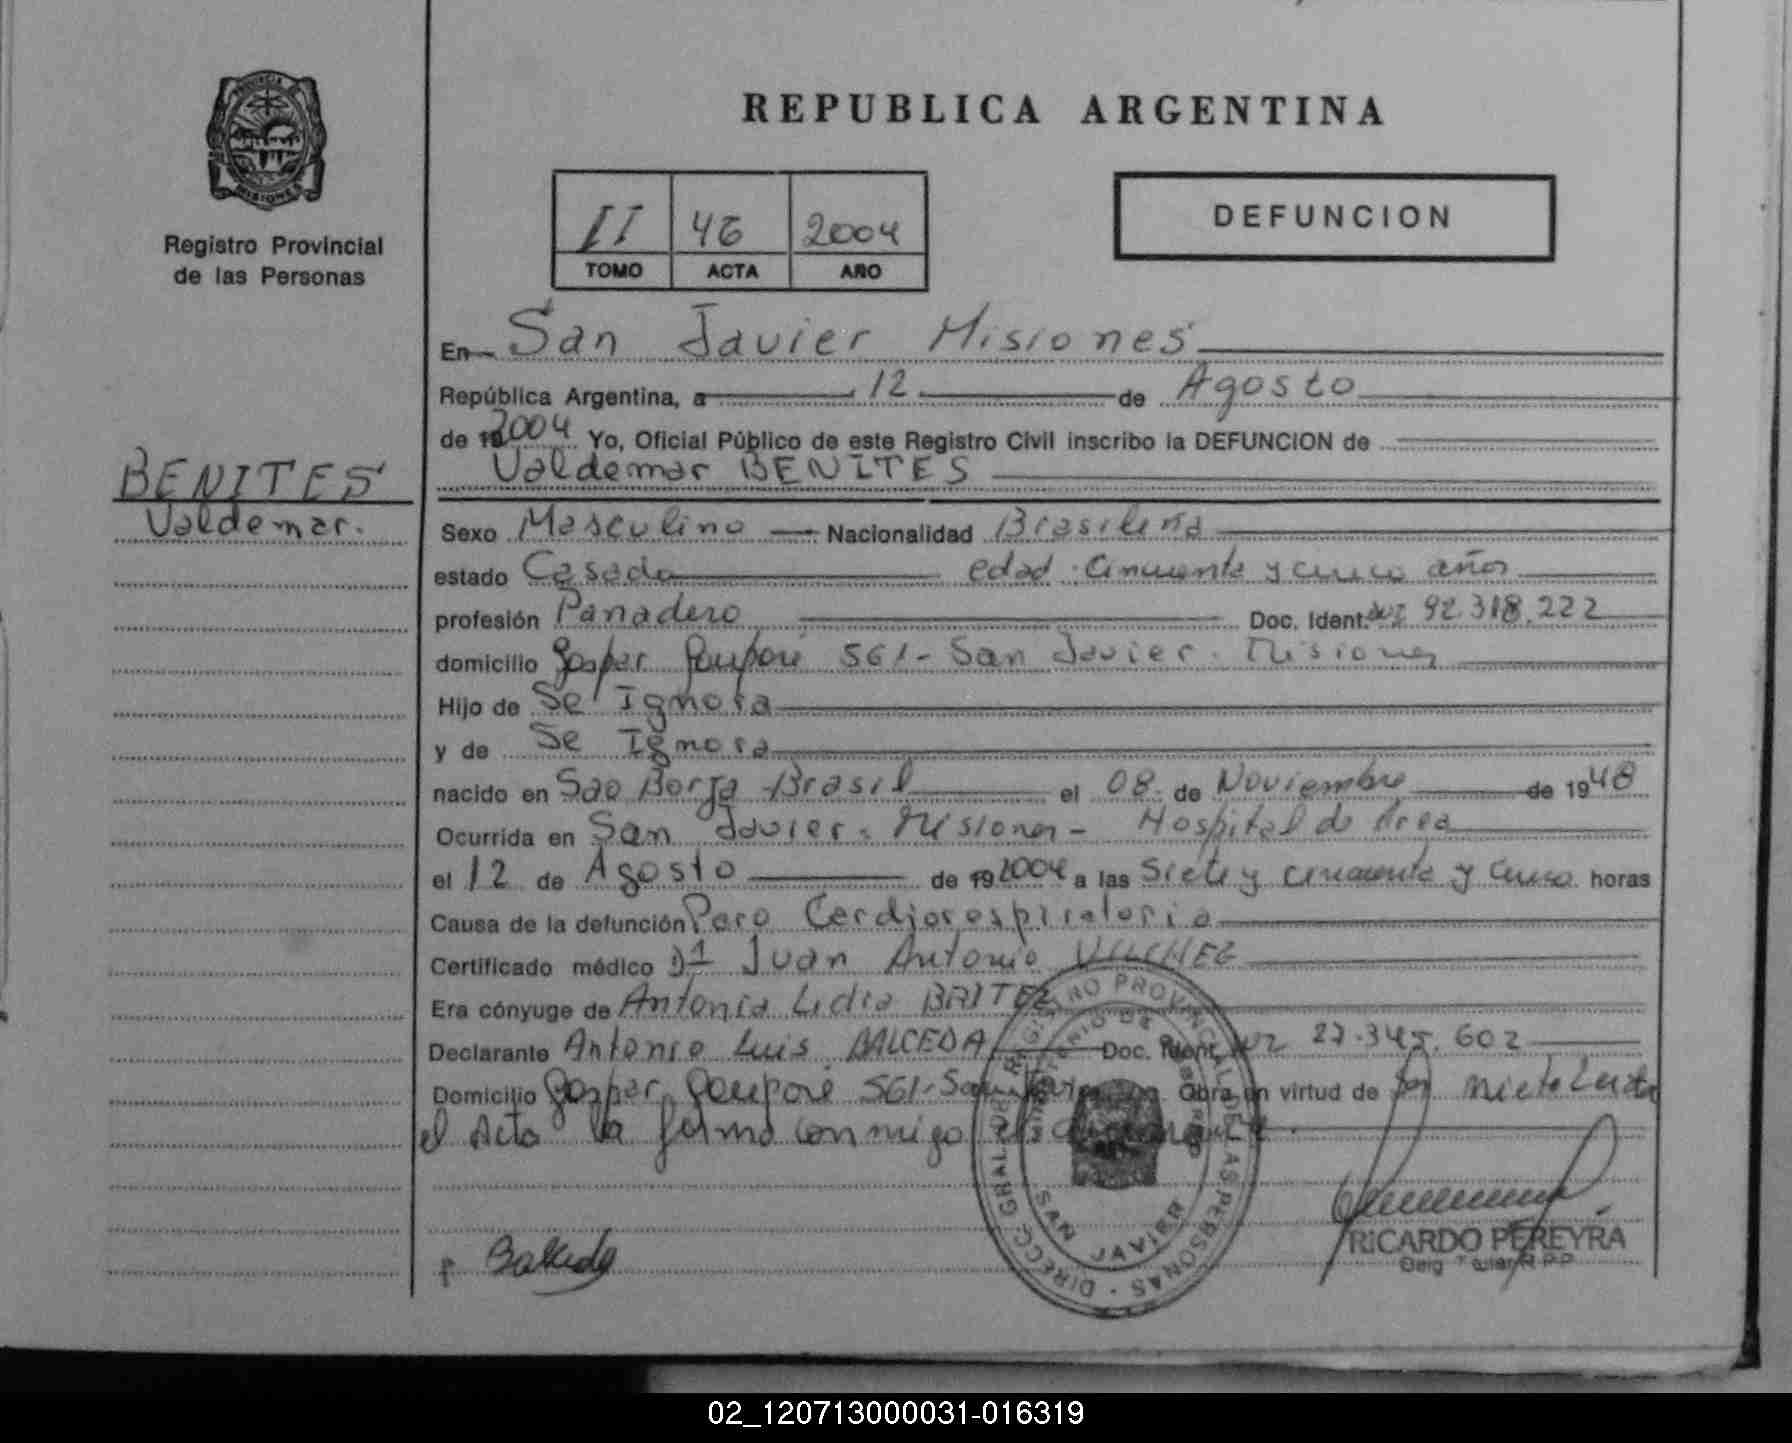 REPUBLICA ARGENTINA
PROVINCIA DE MISIONES
Registro Provincial
de las Personas
II 46 2004
TOMO ACTA AÑO
DEFUNCION
En San Javier Misiones
República Argentina, a 12 de Agosto
de 19 2004 Yo, Oficial Público de este Registro Civil inscribo la DEFUNCION de
Valdemar BENITES
BENITES
Valdemar.
Sexo Masculino Nacionalidad Brasileña
estado Casado edad cincuenta y cinco años
profesión Panadero Doc. Ident. 92.318.222
domicilio Gaspar 561 - San Javier. Misiones
Hijo de Se Ignora
y de Se Ignora
nacido en Sao Borja - Brasil el 08 de Noviembre de 1948
Ocurrida en San Javier. Misiones - Hospital de Area
el 12 de Agosto de 19 2004 a las Siete y cincuenta y cinco horas
Causa de la defunción Paro Cardiorespiratorio
Certificado médico Dr Juan Antonio VILCHEZ
Era cónyuge de Antonia Lidia BRITEZ
Declarante Antonio Luis BALCEDA Doc. Ident. 27.345.602
Domicilio Gaspar 561 - San Javier Obra en virtud de ser nieto Leida
el Acta la firma conmigo el
DIRECC. GRAL. DEL REGISTRO PROVINCIAL DE LAS PERSONAS
SAN JAVIER
Balceda
RICARDO PEREYRA
02_120713000031-016319